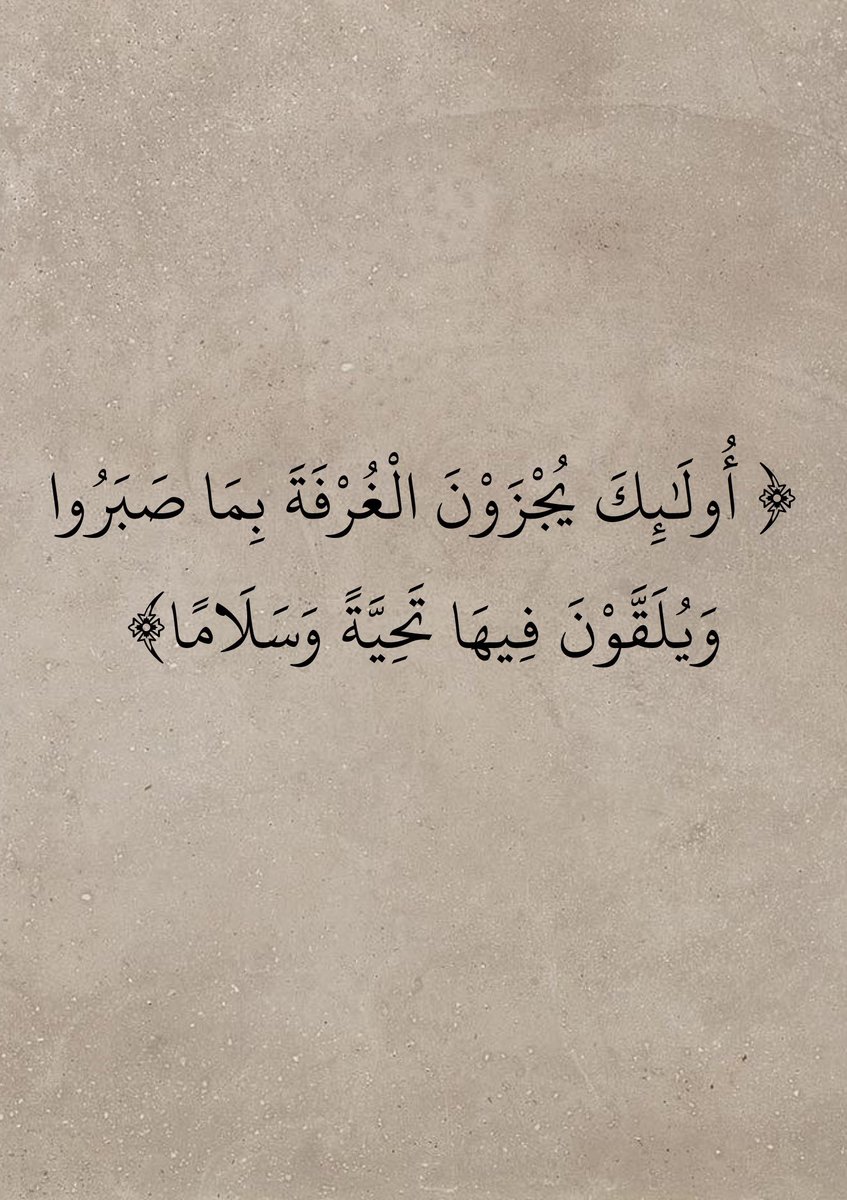 ﴿ أُولَٰئِكَ يُجْزَوْنَ الْغُرْفَةَ بِمَا صَبَرُوا
وَيُلَقَّوْنَ فِيهَا تَحِيَّةً وَسَلَامًا﴾